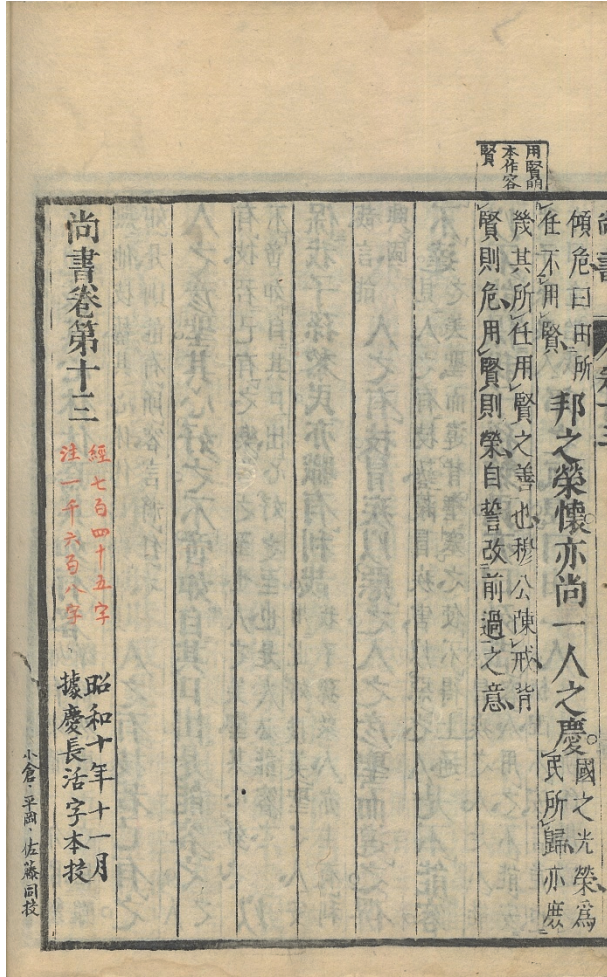 用賢前
本作容
賢
傾危曰由所
任不用賢
邦之榮懷亦尚一人之慶
國之光榮爲
民所歸亦庶
幾其所任用賢之善也穆公陳戒背
賢則危用賢則榮自誓改前過之意
尚書卷第十三
經七百四十五字
注一千六百八字
昭和十年十一月
據慶長活字本校
小倉・平岡・佐藤同校